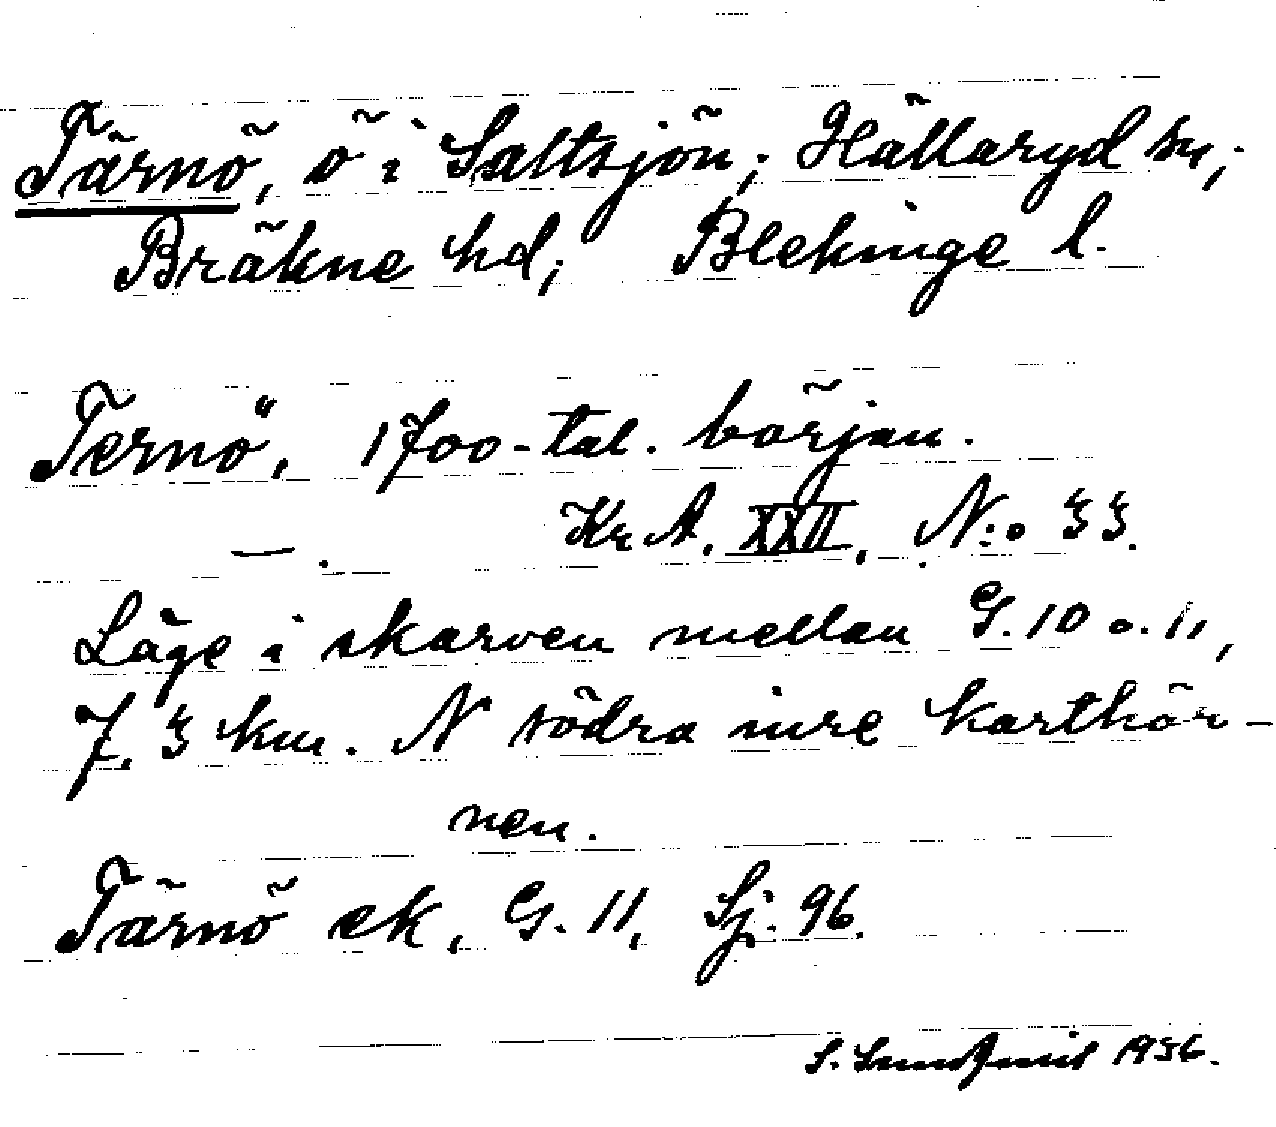 Tärnö, ö i Saltsjön; Hällaryd sn;
Bräkne hd; Blekinge l.
Ternö, 1700-tal. början.
— . Kr A. XXII, N:o 33.
Läge i skarven mellan G. 10 o. 11,
7,3 km. N södra inre karthör-
nen.
Tärnö ek, G. 11, Sj. 96.
S. Sundqvist 1936.